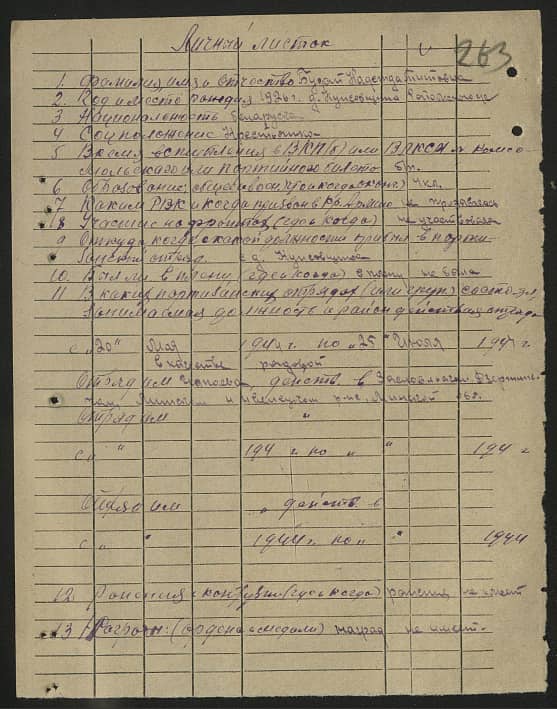 Личный листок
263
1. Фамилия, имя и отчество Надежда Титовна
2. Год и место рождения 1926 г. д.
3 Национальность беларуска
4 Соц положение Крестьянка
5 Время вступления в ВКП(б) или ВЛКСМ № комсо-
мольского или партийного билета б/п.
6 Образование, общее и военное 4 кл.
7 Каким РВК и когда призван в Кр. Армию не призывалась
8 Участие на фронтах (где и когда) не участвовала
9 Откуда, когда и с какой должности прибыл в парти-
занский отряд с д.
10. Был ли в плену, (где и когда) в плену не была
11 В каких партизанских отрядах (или групп)
занимаемая должность и район действия отряда
с „20" мая 194 г. по „25" июля 194 г
в качестве рядовой
Отряд им Чапаева, действ. в Заславльском, Дзержин-
ском, Минском и р-не, Минской обл.
Отряд им "
с „ " 194 г. по „ " 194 г
Отряд им " действ в
с „ " 1944 г. по „ " 1944
12. Ранения и контузии (где и когда) ранения не имеет
13 Награды: (ордена и медали) наград не имеет.